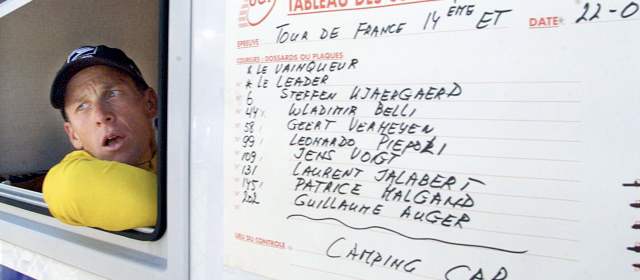 TABLEAU DES
ÉPREUVE TOUR DE FRANCE 14 ÈME ET DATE: 22-0
COUREURS: DOSSARDS OU PLAQUES
* LE VAINQUEUR
* LE LEADER
6 STEFFEN KJAERGAERD
44 WLADIMIR BELLI
58 GEERT VERHEYEN
99 LEONARDO PIEPOLI
109 JENS VOIGT
131 LAURENT JALABERT
145 PATRICE HALGAND
202 GUILLAUME AUGER
LIEU DU CONTRÔLE
CAMPING CAR